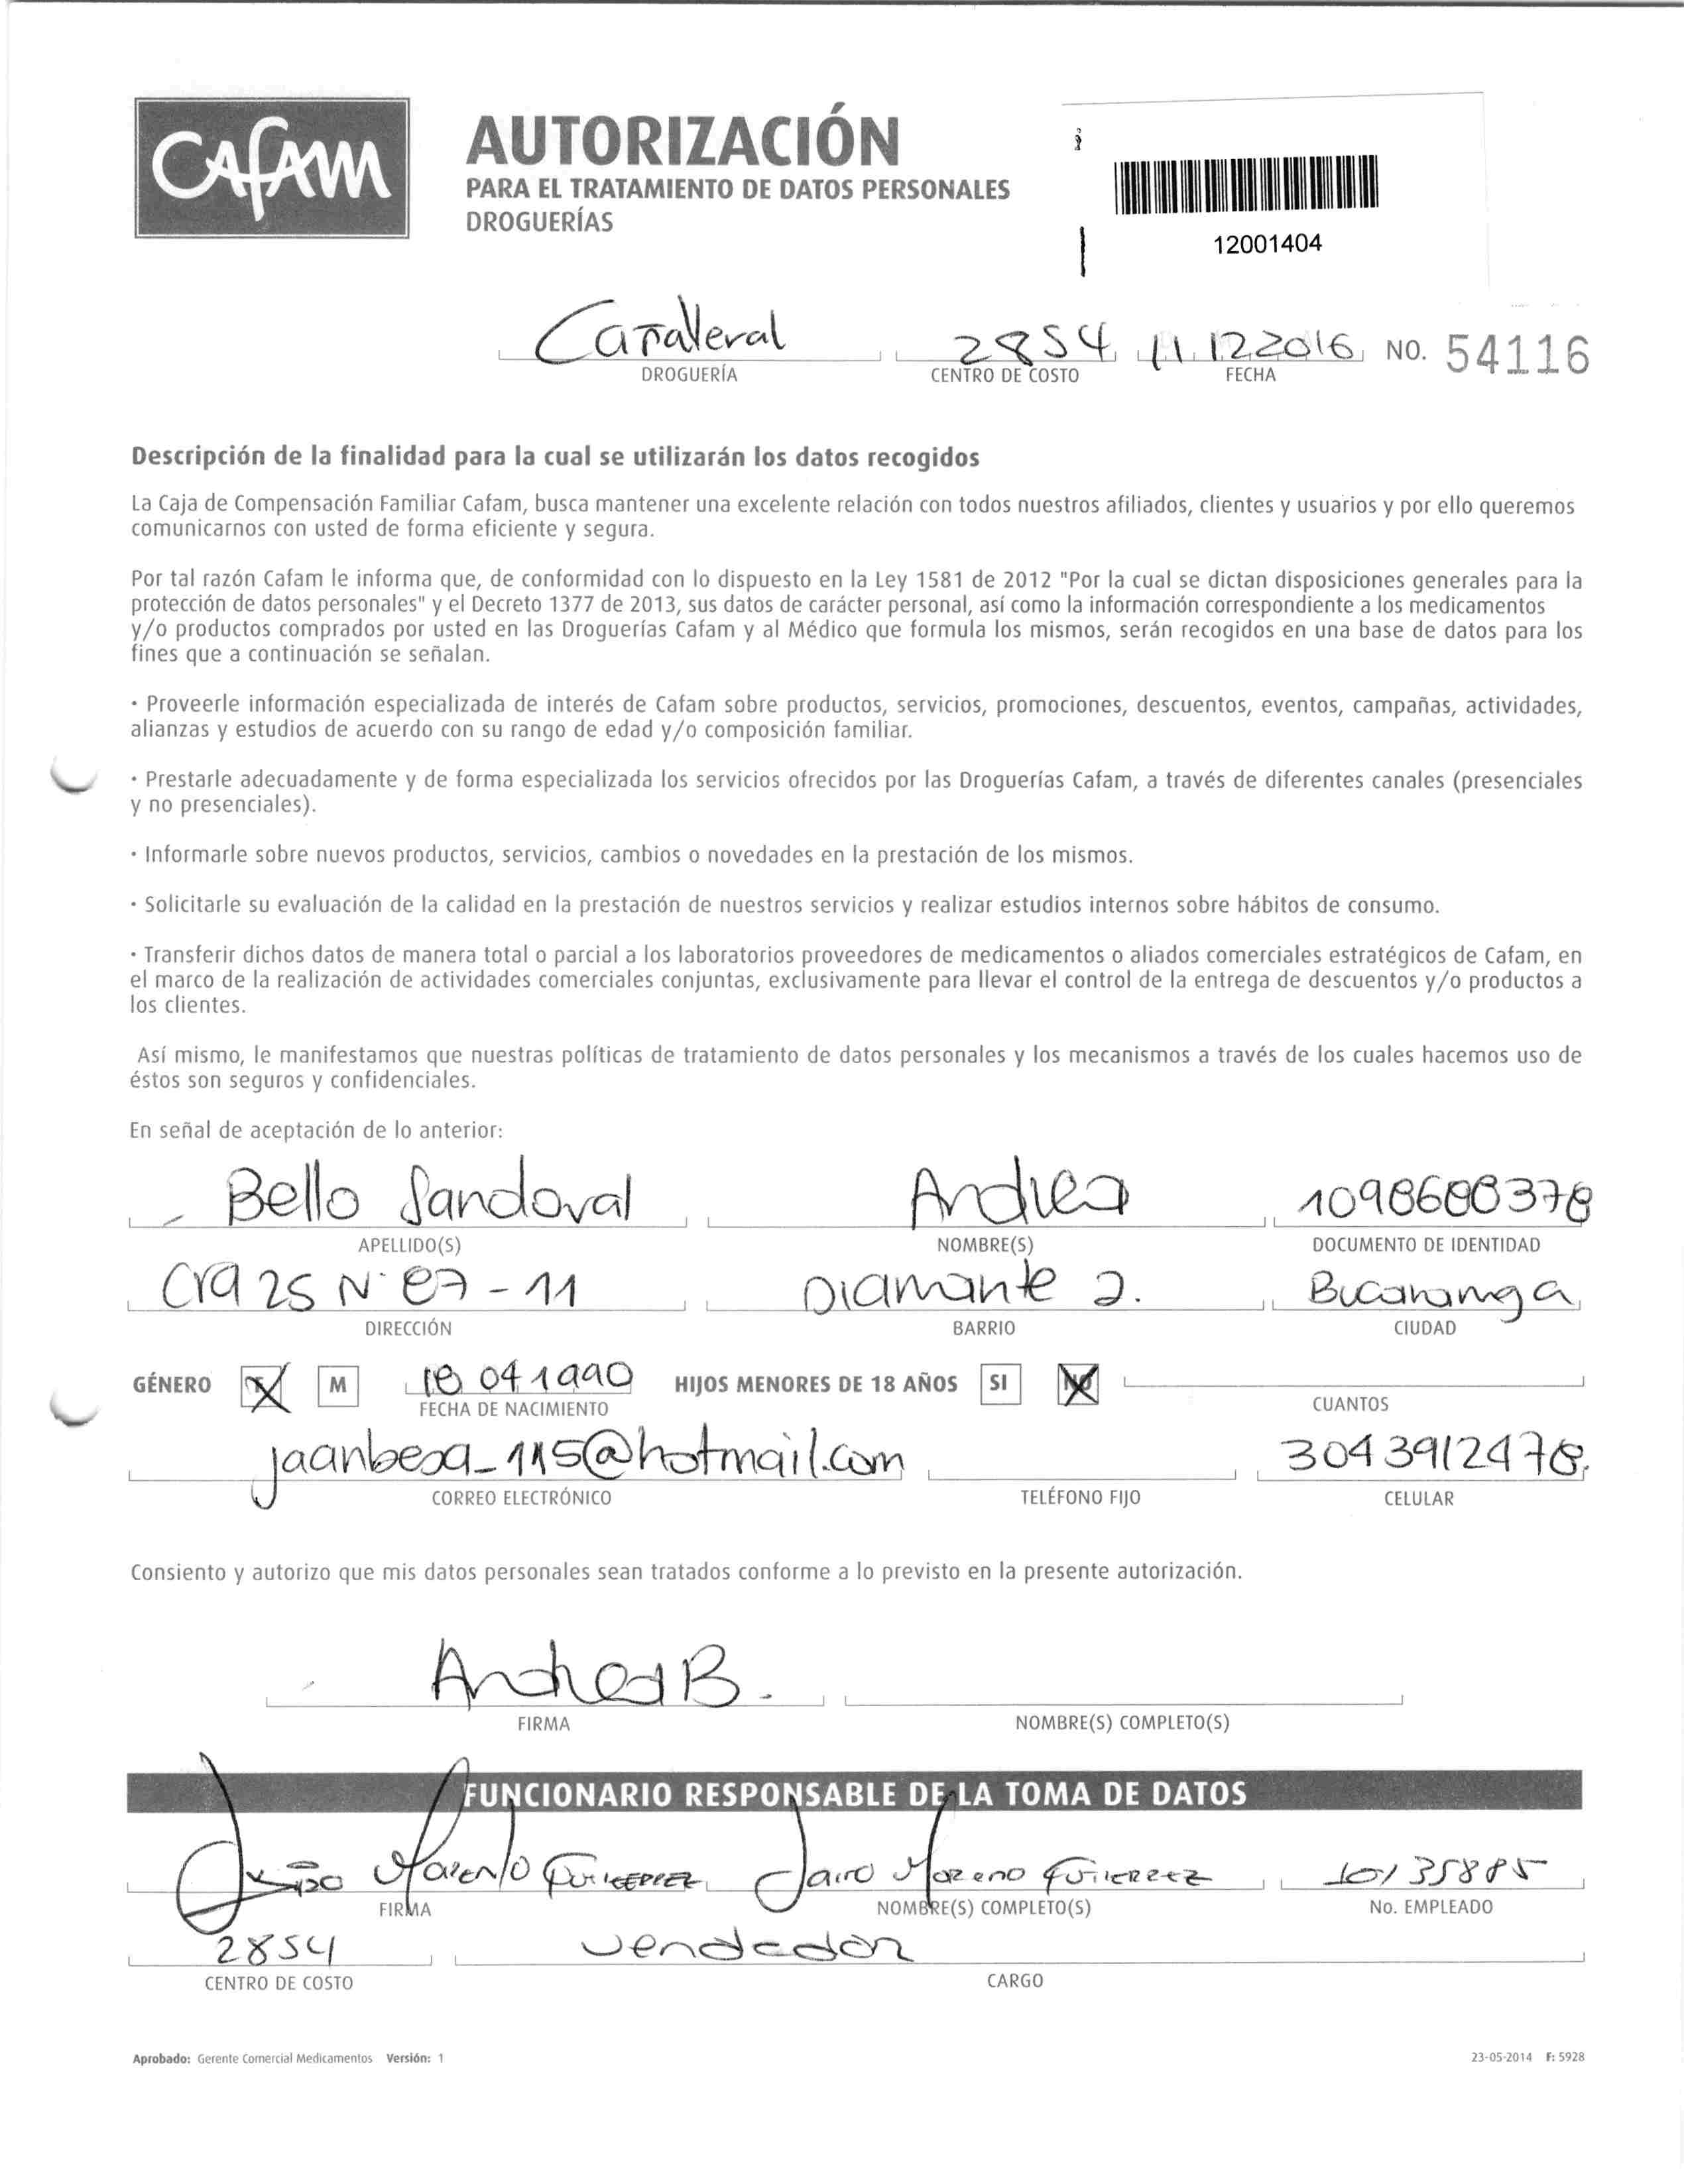 CAFAM
AUTORIZACIÓN
PARA EL TRATAMIENTO DE DATOS PERSONALES
DROGUERÍAS
12001404
Cañaveral 2854 11 12 2016 NO. 54116
DROGUERÍA CENTRO DE COSTO FECHA
Descripción de la finalidad para la cual se utilizarán los datos recogidos
La Caja de Compensación Familiar Cafam, busca mantener una excelente relación con todos nuestros afiliados, clientes y usuarios y por ello queremos
comunicarnos con usted de forma eficiente y segura.
Por tal razón Cafam le informa que, de conformidad con lo dispuesto en la Ley 1581 de 2012 "Por la cual se dictan disposiciones generales para la
protección de datos personales" y el Decreto 1377 de 2013, sus datos de carácter personal, así como la información correspondiente a los medicamentos
y/o productos comprados por usted en las Droguerías Cafam y al Médico que formula los mismos, serán recogidos en una base de datos para los
fines que a continuación se señalan.
· Proveerle información especializada de interés de Cafam sobre productos, servicios, promociones, descuentos, eventos, campañas, actividades,
alianzas y estudios de acuerdo con su rango de edad y/o composición familiar.
· Prestarle adecuadamente y de forma especializada los servicios ofrecidos por las Droguerías Cafam, a través de diferentes canales (presenciales
y no presenciales).
· Informarle sobre nuevos productos, servicios, cambios o novedades en la prestación de los mismos.
· Solicitarle su evaluación de la calidad en la prestación de nuestros servicios y realizar estudios internos sobre hábitos de consumo.
· Transferir dichos datos de manera total o parcial a los laboratorios proveedores de medicamentos o aliados comerciales estratégicos de Cafam, en
el marco de la realización de actividades comerciales conjuntas, exclusivamente para llevar el control de la entrega de descuentos y/o productos a
los clientes.
Así mismo, le manifestamos que nuestras políticas de tratamiento de datos personales y los mecanismos a través de los cuales hacemos uso de
éstos son seguros y confidenciales.
En señal de aceptación de lo anterior:
Bello Sandoval Andrea 1098688378
APELLIDO(S) NOMBRE(S) DOCUMENTO DE IDENTIDAD
Cra 25 N° 87 - 11 Diamante 2. Bucaramanga
DIRECCIÓN BARRIO CIUDAD
GÉNERO F M 18 04 1990 HIJOS MENORES DE 18 AÑOS SI NO
FECHA DE NACIMIENTO CUANTOS
jaanbesa_115@hotmail.com 3043912478
CORREO ELECTRÓNICO TELÉFONO FIJO CELULAR
Consiento y autorizo que mis datos personales sean tratados conforme a lo previsto en la presente autorización.
Andrea B.
FIRMA NOMBRE(S) COMPLETO(S)
FUNCIONARIO RESPONSABLE DE LA TOMA DE DATOS
Jairo Moreno Gutierrez Jairo Moreno Gutierrez 10135885
FIRMA NOMBRE(S) COMPLETO(S) No. EMPLEADO
2854 vendedor
CENTRO DE COSTO CARGO
Aprobado: Gerente Comercial Medicamentos Versión: 1 23-05-2014 F: 5928